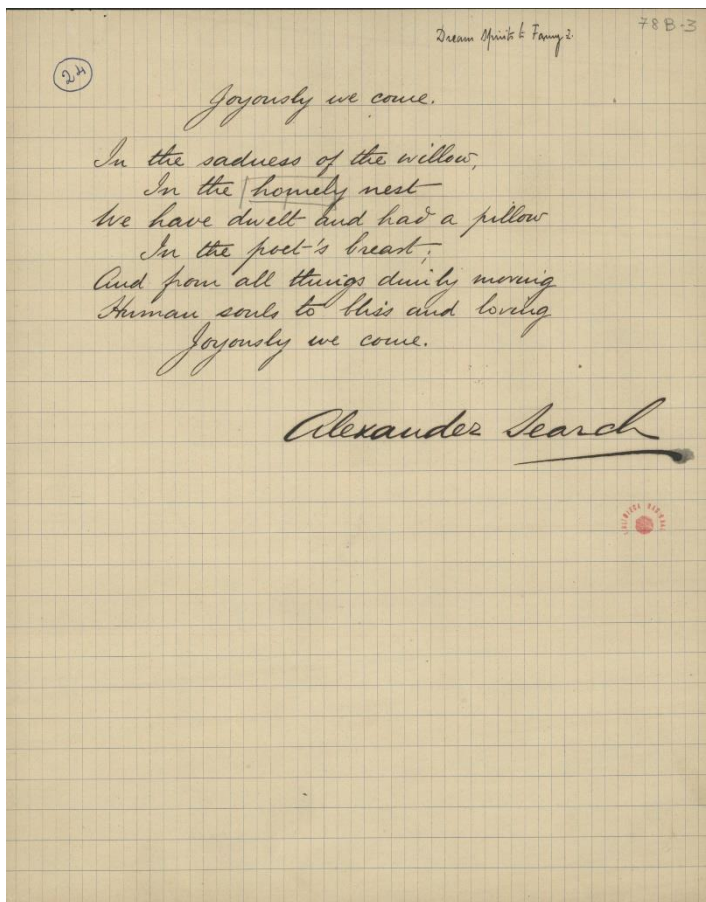 78B-3
Dream Spirits to Fanny 2.
24
Joyously we come.
In the sadness of the willow,
In the homely nest
We have dwelt and had a pillow
In the poet's breast;
And from all things dimly moving
Human souls to bliss and loving
Joyously we come.
Alexander Search
BIBLIOTECA NACIONAL